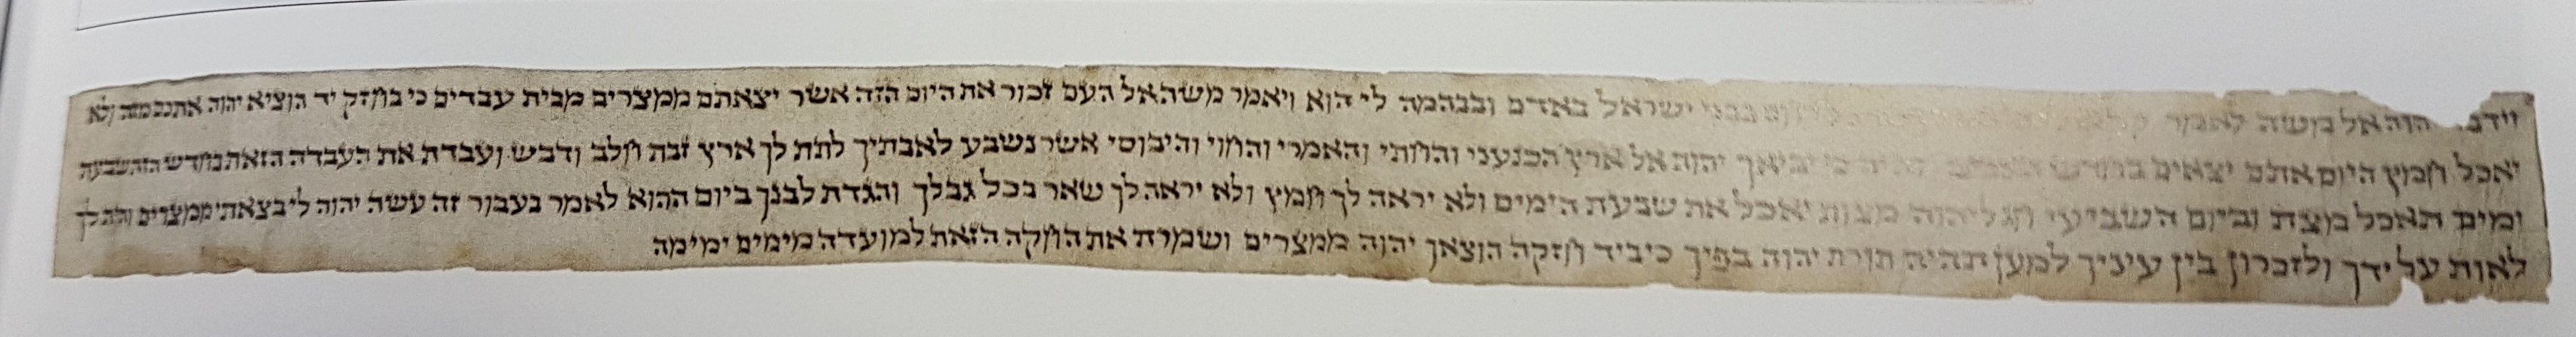 הוה אל משה לאמר בבני ישראל באדם ובבהמה לי הוא ויאמר משה אל העם זכור את היום הזה אשר יצאתם ממצרים מבית עבדים כי בחזק יד הוציא יהוה אתכם מזה ולא
יאכל חמץ היום אתם יצאים בחדש כי יביאך יהוה אל ארץ הכנעני והחתי והאמרי והחוי והיבוסי אשר נשבע לאבתיך לתת לך ארץ זבת חלב ודבש ועבדת את העבדה הזאת בחדש הזה שבעת
ימים תאכל מצת וביום השביעי חג ליהוה מצות יאכל את שבעת הימים ולא יראה לך חמץ ולא יראה לך שאר בכל גבלך והגדת לבנך ביום ההוא לאמר בעבור זה עשה יהוה לי בצאתי ממצרים והיה לך
לאות על ידך ולזכרון בין עיניך למען תהיה תורת יהוה בפיך כי ביד חזקה הוצאך יהוה ממצרים ושמרת את החקה הזאת למועדה מימים ימימה